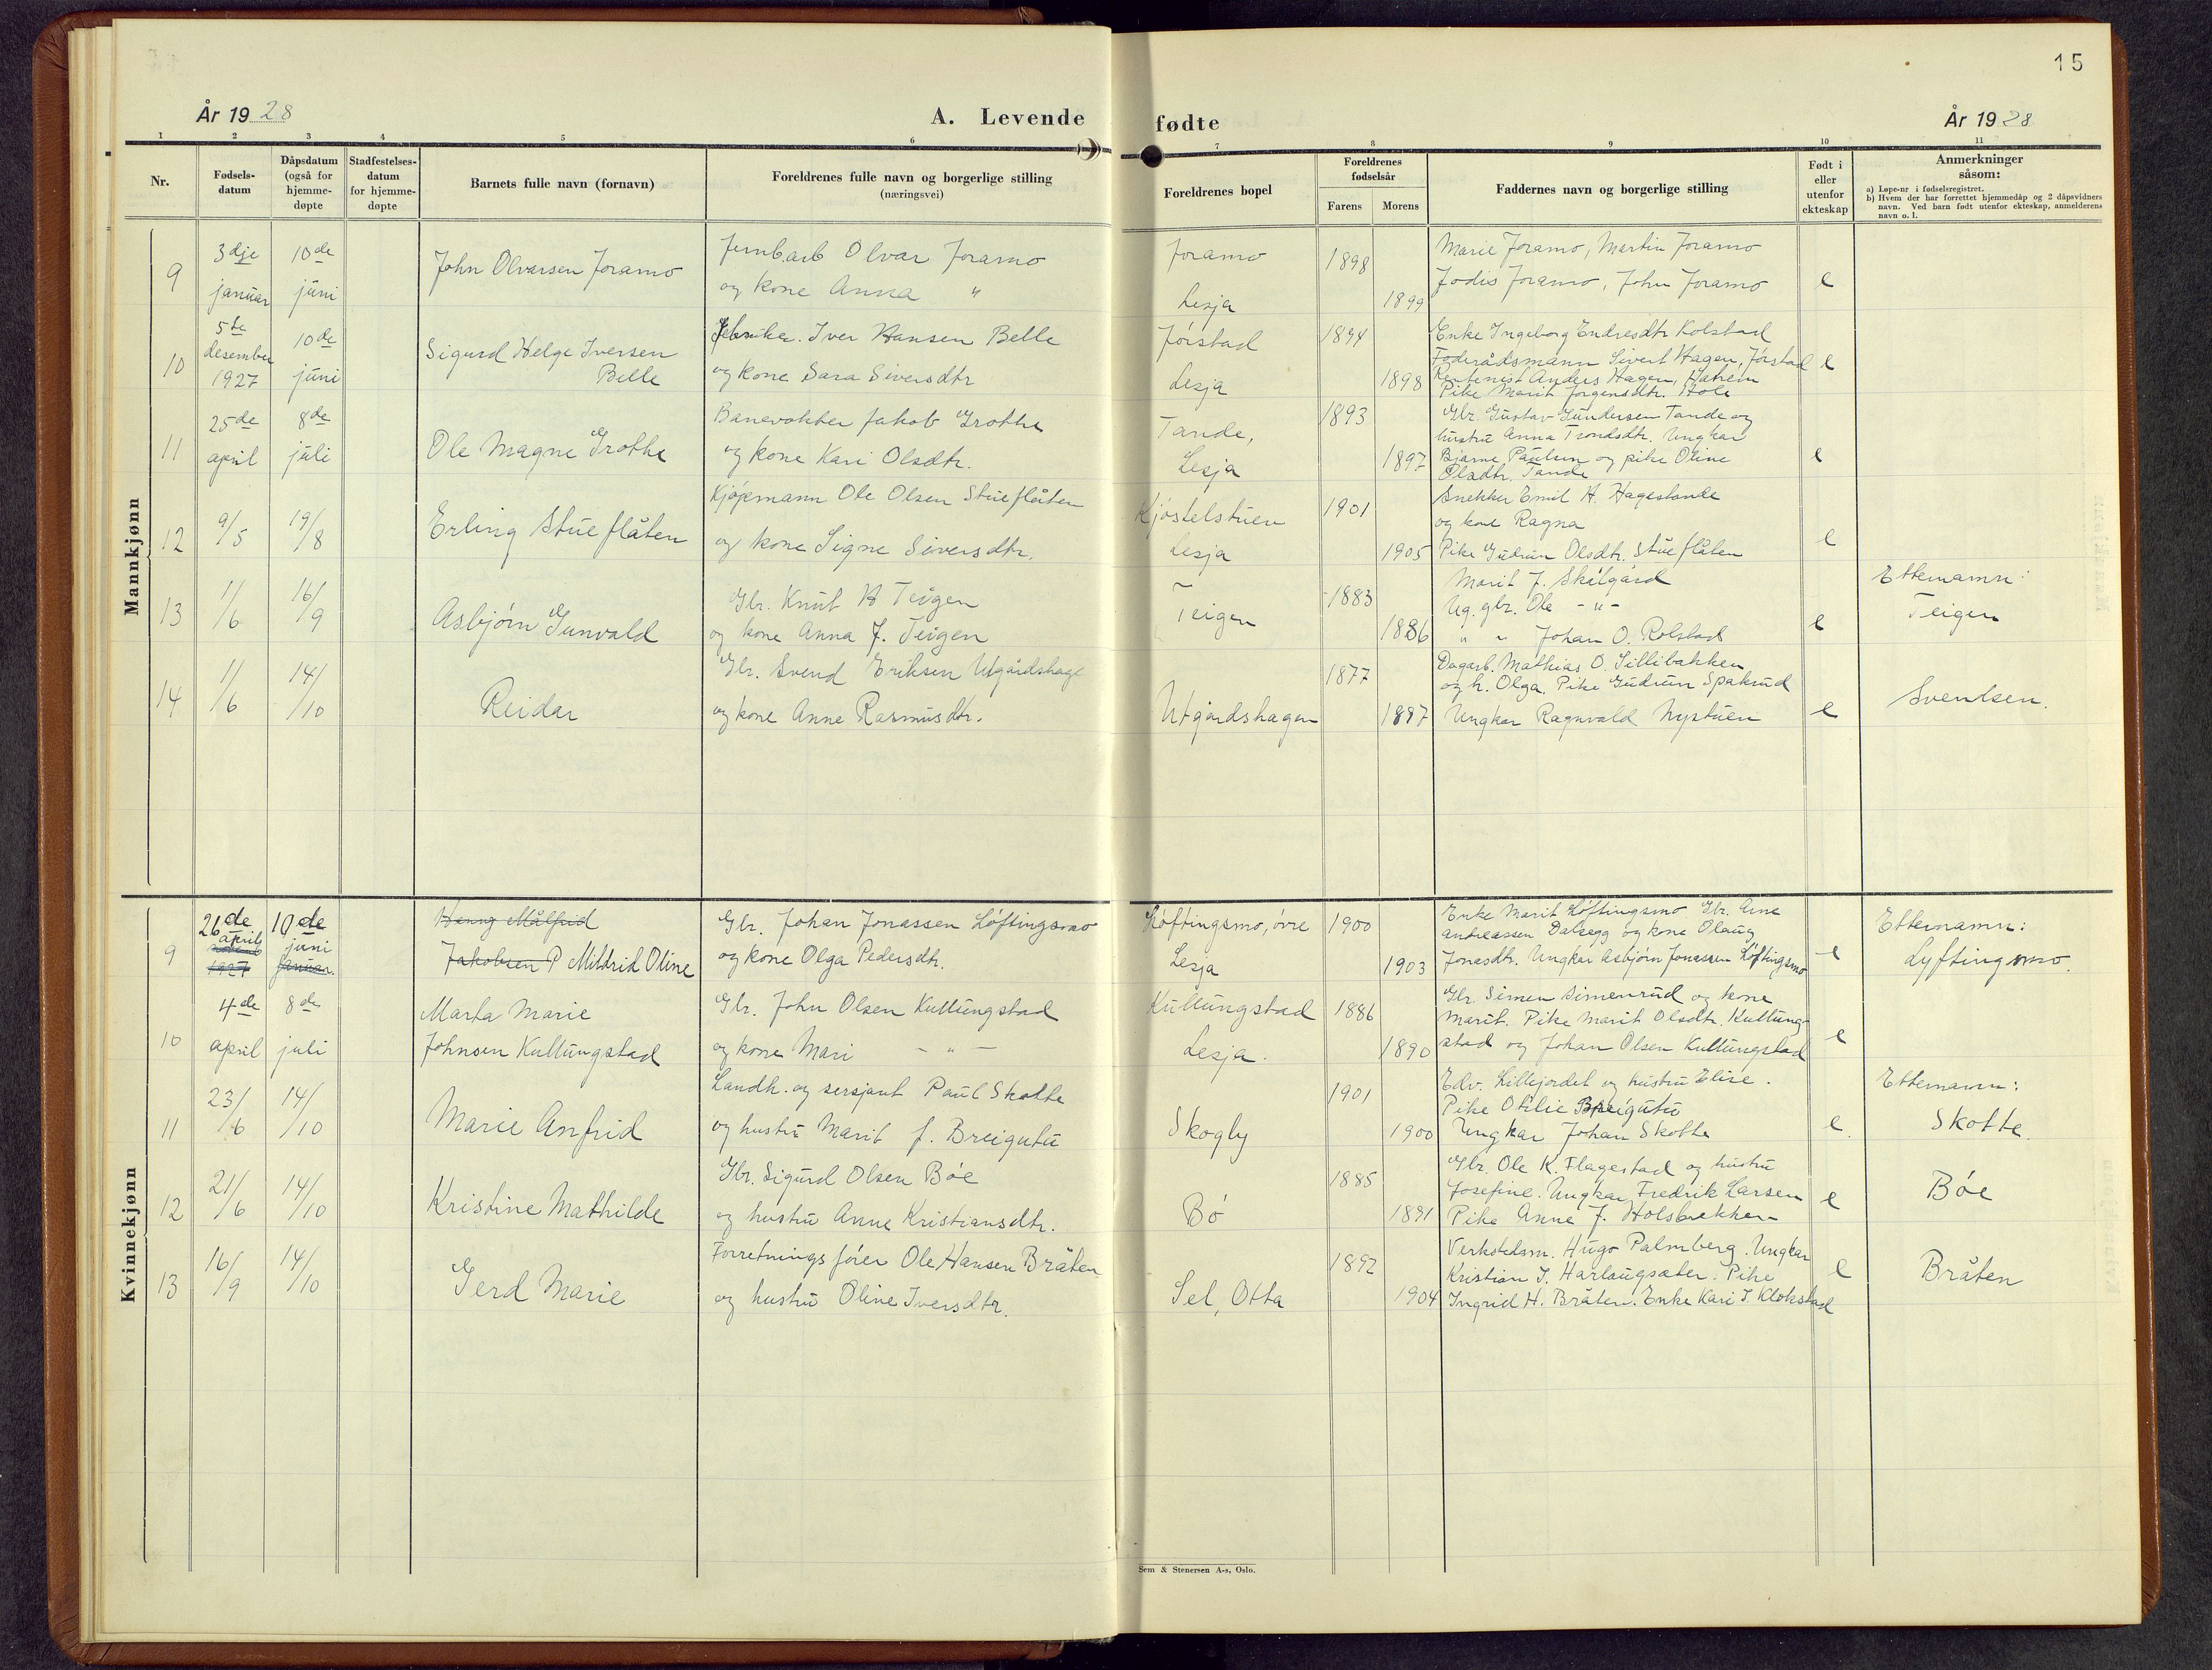 15
År 1928
A. Levende fødte
År 1928
1 2 3 4 5 6 7 8 9 10 11
Nr.
Fødsels-datum
Dåpsdatum (også for hjemme-døpte
Stadfestelses-datum for hjemme-døpte
Barnets fulle navn (fornavn)
Foreldrenes fulle navn og borgerlige stilling (næringsvei)
Foreldrenes bopel
Foreldrenes fødselsår
Farens Morens
Faddernes navn og borgerlige stilling
Født i eller utenfor ekteskap
Anmerkninger såsom:
a) Løpe-nr i fødselsregistret.
b) Hvem der har forrettet hjemmedåp og 2 dåpsvidners navn. Ved barn født utenfor ekteskap, anmelderens navn o. l.
Mannkjønn
9
3dje januar
10de juni
John Olvarsen Joramo
Jernb.arb Olvar Joramo
og kone Anna "
Joramo
Lesja
1898
1899
Marie Joramo, Martin Joramo
Jodis Joramo, John Joramo
e
10
5te desember 1927
10de juni
Sigurd Helge Iversen
Belle
Iver Hansen Belle
og kone Sara Siversdtr
Jørstad
Lesja
1894
1898
Enke Ingeborg Endresdtr Kolstad
Føderådsmann Sivert Hagen, Jørstad
Rentenist Anders Hagen, Hatrem
Pike Marit Jørgensdtr. Hole
e
11
25de april
8de juli
Ole Magne Grothe
Banevokter Jakob Grothe
og kone Kari Olsdtr.
Tande,
Lesja
1893
1897
Gbr. Gustav Gundersen Tande og
hustru Anna Trondsdtr. Ungkar
Bjarne Paulsen og pike Oline
Olsdtr. Tande
e
12
9/5
19/8
Erling Stueflåten
Kjøpmann Ole Olsen Stueflåten
og kone Signe Siversdtr.
Kjøstelstuen
Lesja
1901
1905
Snekker Emil H. Hagestande
og kone Ragna
Pike Gudrun Olsdtr. Stueflåten
e
13
1/6
16/9
Asbjørn Gunvald
Gbr. Knut H Teigen
og kone Anna J. Teigen
Teigen
1883
1886
Marit J. Skålgård
Ug. gbr. Ole - " -
" " Johan O. Rolstad
e
Etternamn:
Teigen
14
1/6
14/10
Reidar
Gbr. Svend Eriksen Utgårdshage
og kone Anne Rasmusdtr.
Utgårdshagen
1877
1887
Dagarb. Mathias O. Lillibakken
og h. Olga. Pike Gudrun Spakrud
Ungkar Ragnvald Nystuen
e
Svendsen.
Kvinnekjønn
9
26de april 1927
10de juni januar
Henny Målfrid
Jakobsen Mildrid Oline
Gbr. Johan Jonassen Løftingsmo
og kone Olga Pedersdtr.
Løftingsmo, øvre
Lesja
1900
1903
Enke Marit Løftingsmo Gbr. Arne
Andreassen Dalsegg og kone Olaug
Jonasdtr. Ungkar Asbjørn Jonassen Løftingsmo
e
Etternamn:
Lyftingsmo.
10
4de april
8de juli
Marta Marie
Johnsen Kullungstad
Gbr. John Olsen Kullungstad
og kone Mari - " -
Kullungstad
Lesja.
1886
1890
Gbr. Simen Simenrud og kone
Marit. Pike Marit Olsdtr. Kullung-
stad og Johan Olsen Kullungstad
e
11
23/6
14/10
Marie Anfrid
Landh. og sersjant Paul Skotte
og hustru Marit f. Breigutu
Skogly
1901
1900
Edv. Lillejordet og hustru Elise.
Pike Otilie Breigutu
Ungkar Johan Skotte
e.
Etternamn:
Skotte.
12
21/6
14/10
Kristine Mathilde
Gbr. Sigurd Olsen Bøe
og hustru Anne Kristiansdtr.
Bø
1885
1891
Gbr. Ole K. Flagestad og hustru
Josefine. Ungkar Fredrik Larsen
Pike Anne J. Holsbrekken
e
Bøe
13
16/9
14/10
Gerd Marie
Forretningsfører Ole Hansen Bråten
og hustru Oline Iversdtr.
Sel, Otta
1892
1904
Verkstedsm. Hugo Palmberg. Ungkar
Kristian I. Harlaugsæter. Pike
Ingrid H. Bråten. Enke Kari I. Klokstad
e
Bråten
Sem & Stenersen A-s, Oslo.